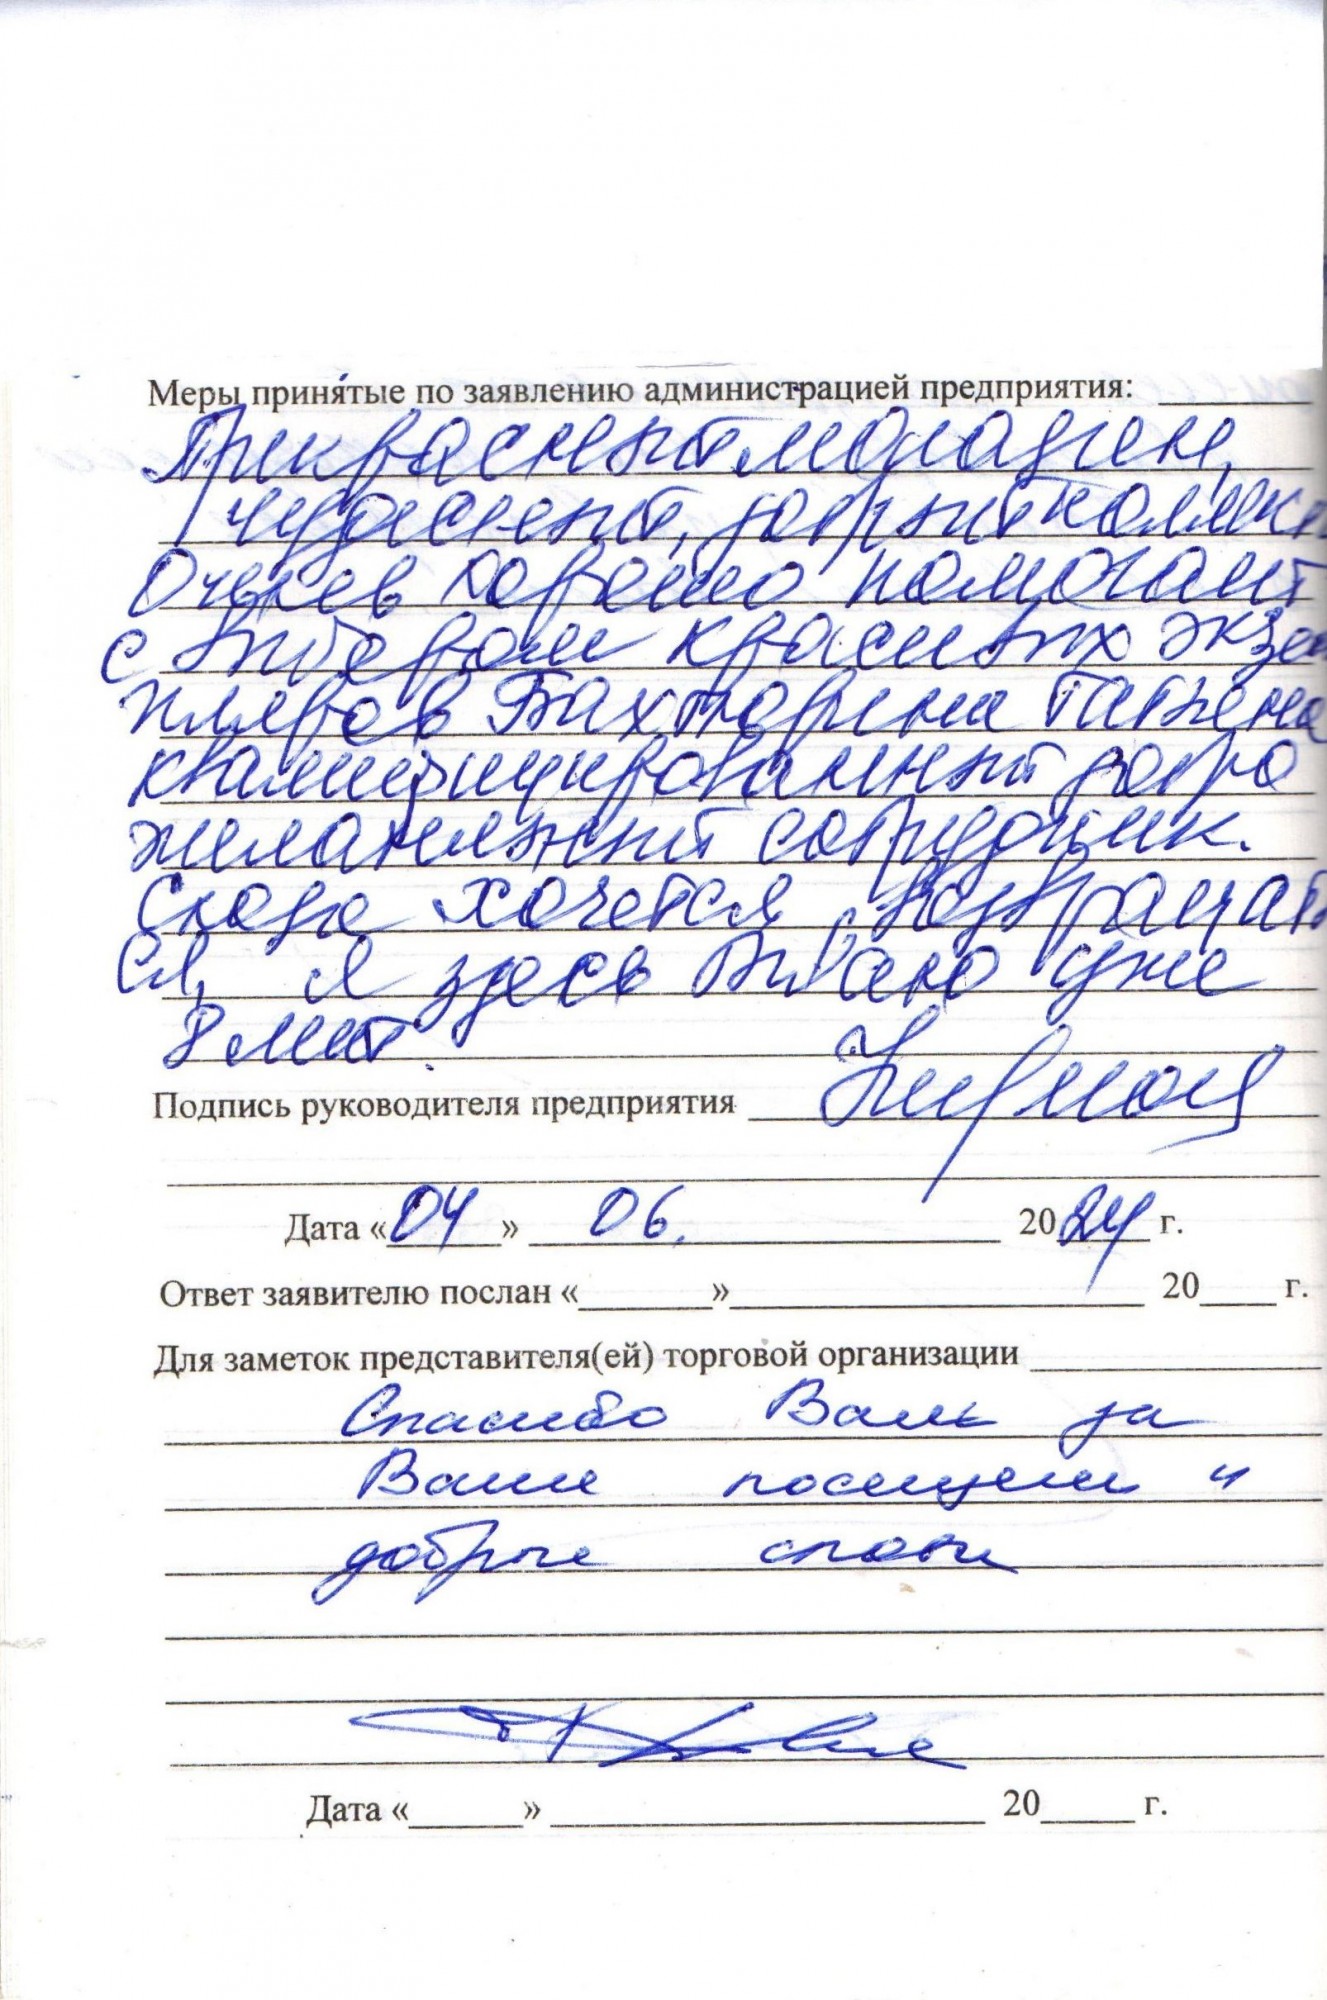 Меры принятые по заявлению администрацией предприятия:
Прикрасный магазин,
чудесный, добрый коллекти
Очень хорошо помогают
с выбором красивых экзем
пляров Бахтюрина Татьяна
квалифицированный добро
желательный сотрудник.
Снова хочется возвращать
ся, я здесь бываю уже
8 лет.
Подпись руководителя предприятия
Дата «04» 06. 2024 г.
Ответ заявителю послан «______»______ 20____ г.
Для заметок представителя(ей) торговой организации
Спасибо Вам за
Ваше посещен и
добрые слова
Дата «______» ______ 20____ г.